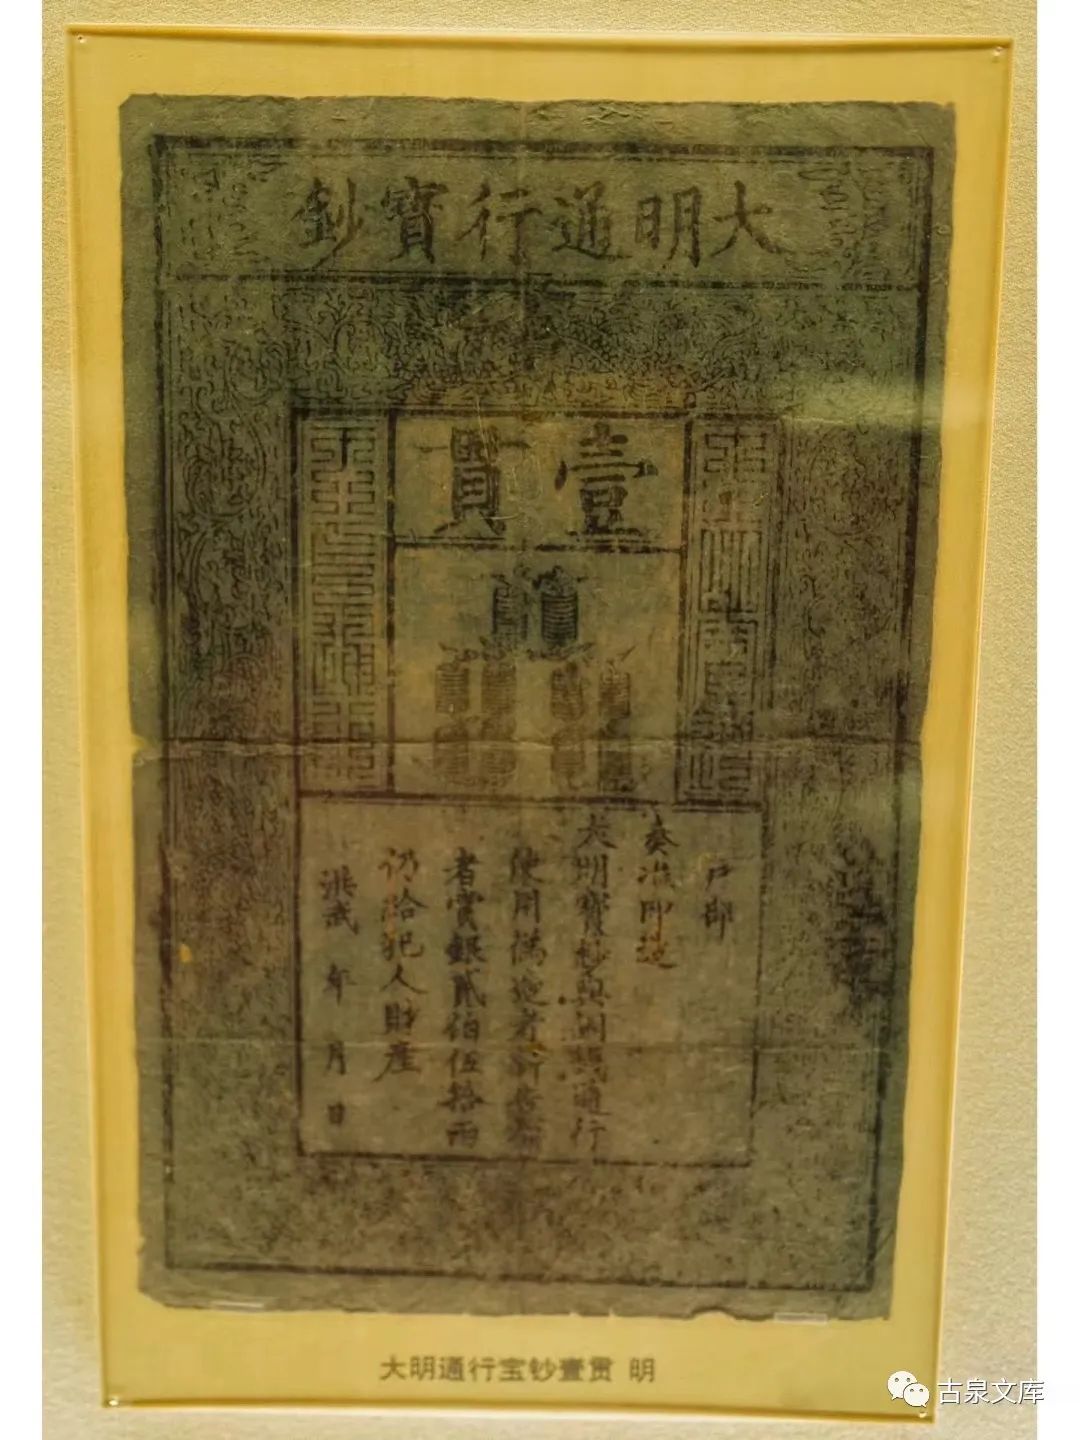 大明通行寶鈔
壹貫
戶部
奏准印造
大明寶鈔與銅錢通行
使用僞造者斬告捕
者賞銀貳伯伍拾兩
仍給犯人財產
洪武 年 月 日
大明通行宝钞壹贯 明
古泉文库